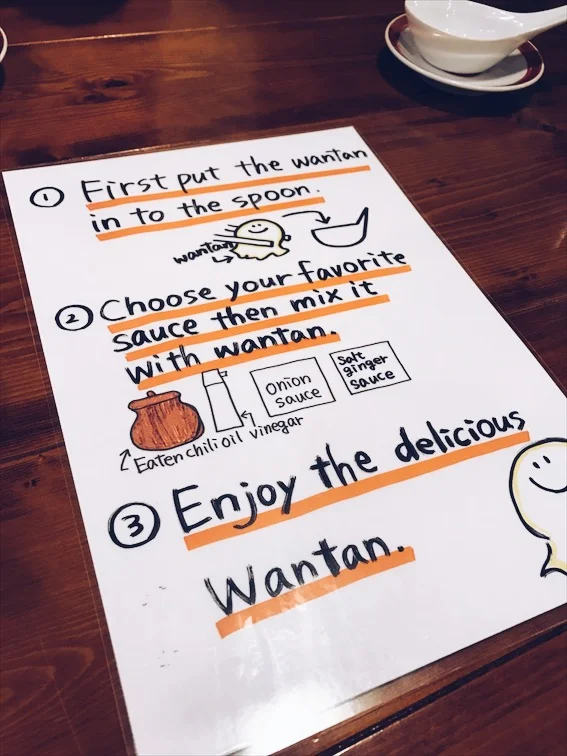 ① First put the wantan
in to the spoon.
wantan
② Choose your favorite
sauce then mix it
with wantan.
Onion
sauce
Salt
ginger
sauce
Eaten chili oil vinegar
③ Enjoy the delicious
Wantan.